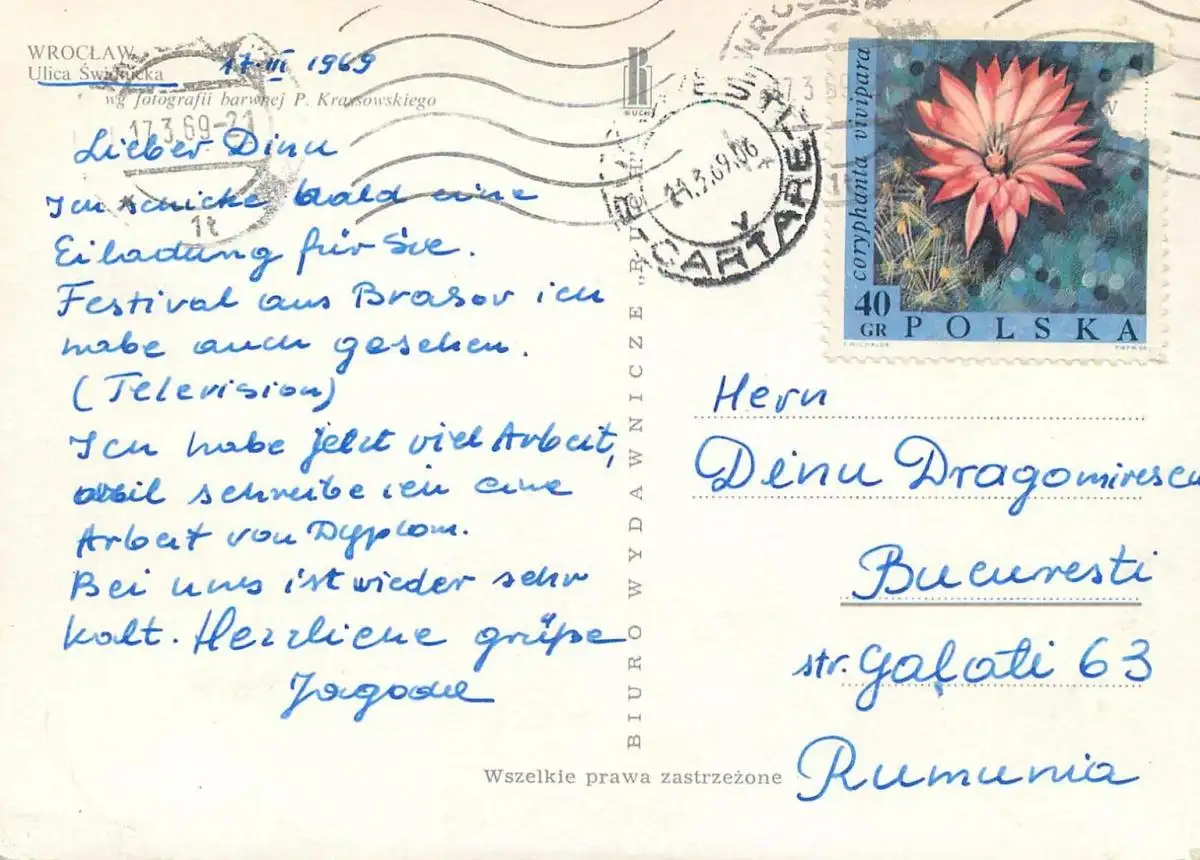 WROCŁAW
Ulica Świdnicka
17·III 1969
wg fotografii barwnej P. Krassowskiego
17.3.69-21
1t
Lieber Dinu
Ich schicke bald eine
Eiladung für Sie.
Festival aus Brasov ich
habe auch gesehen.
(Television)
Ich habe jetzt viel Arbeit,
weil schreibe ich eine
Arbeit von Dyplom.
Bei uns ist wieder sehr
kalt. Herzliche grüße
Jagoda
RUCH
BIURO WYDAWNICZE "RUCH"
Wszelkie prawa zastrzeżone
WROCŁAW
17.3.69
21.3.69.06
CARTARE
coryphanta vivipara
40
GR
POLSKA
Hern
Dinu Dragomirescu
Bucuresti
str. Galati 63
Rumunia